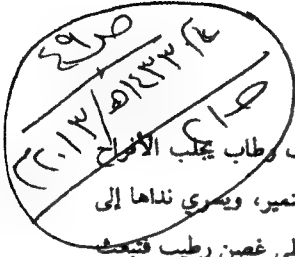 ص ٤٩
١٤٣٣هـ/٢٠١٣
وطاب يجلب الأفراح
نمير، ويسري نداها إلى
لى غصن رطيب فتبعث